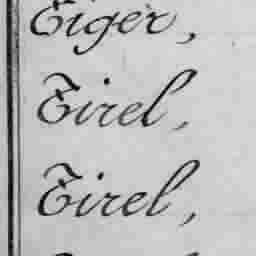 Tiger,
Tirel,
Tirel,